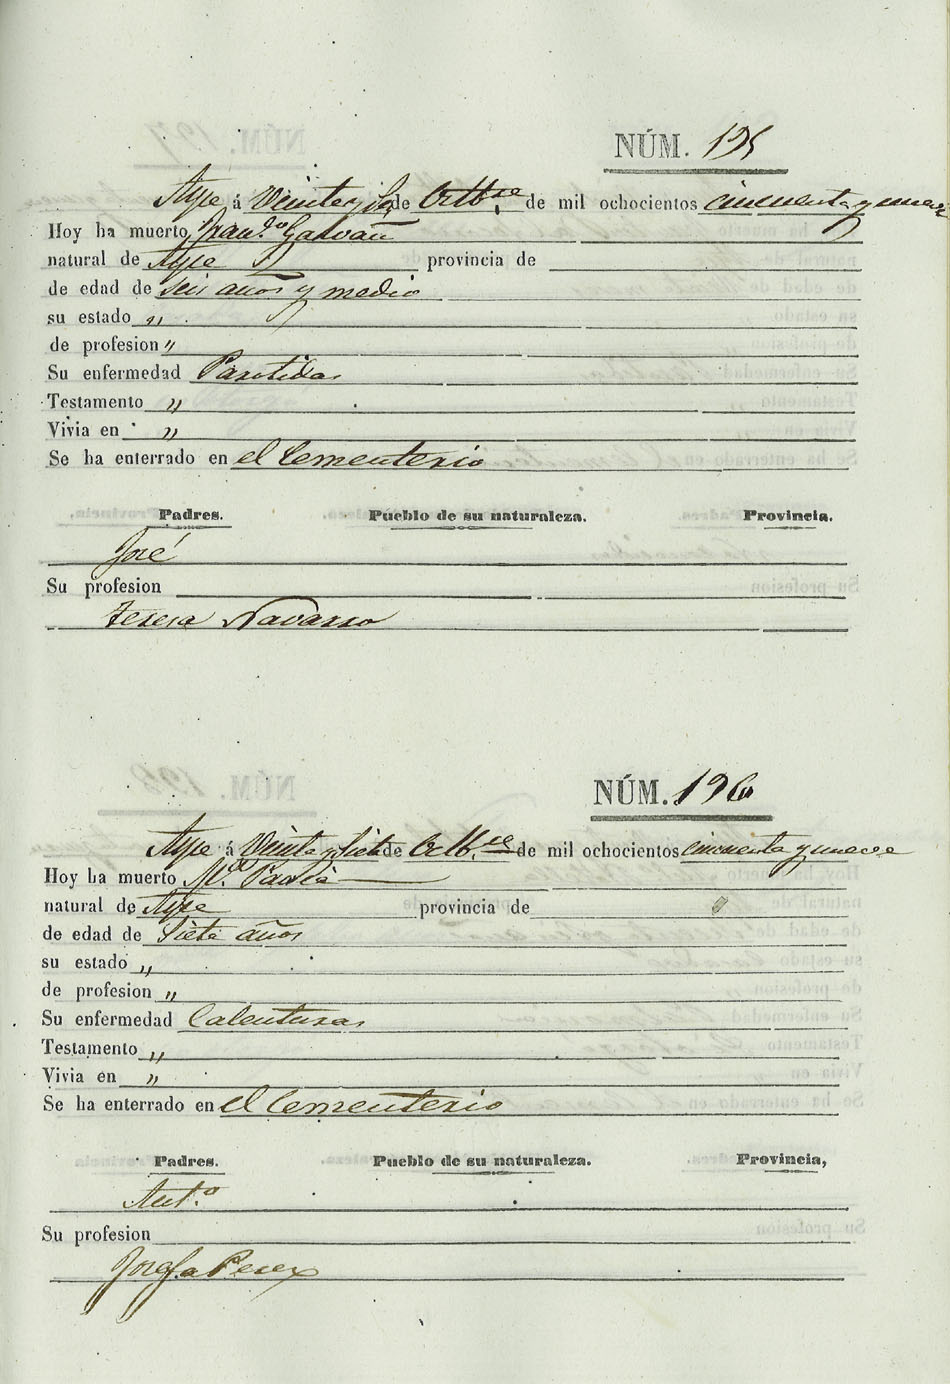 NÚM. 195
Aspe á Veinte y Seis de Octb.re de mil ochocientos cincuenta y nueve
Hoy ha muerto Fran.co Galvañ
natural de Aspe provincia de
de edad de seis años y medio
su estado "
de profesion "
Su enfermedad Parotidas
Testamento "
Vivia en "
Se ha enterrado en el Cementerio
Padres. Pueblo de su naturaleza. Provincia.
José
Su profesion
Teresa Navarro
NÚM. 196
Aspe á Veinte y Siete de Octb.re de mil ochocientos cincuenta y nueve
Hoy ha muerto M.a Pavia
natural de Aspe provincia de
de edad de Siete años
su estado "
de profesion "
Su enfermedad Calenturas
Testamento "
Vivia en "
Se ha enterrado en el Cementerio
Padres. Pueblo de su naturaleza. Provincia,
Ant.o
Su profesion
Josefa Perez